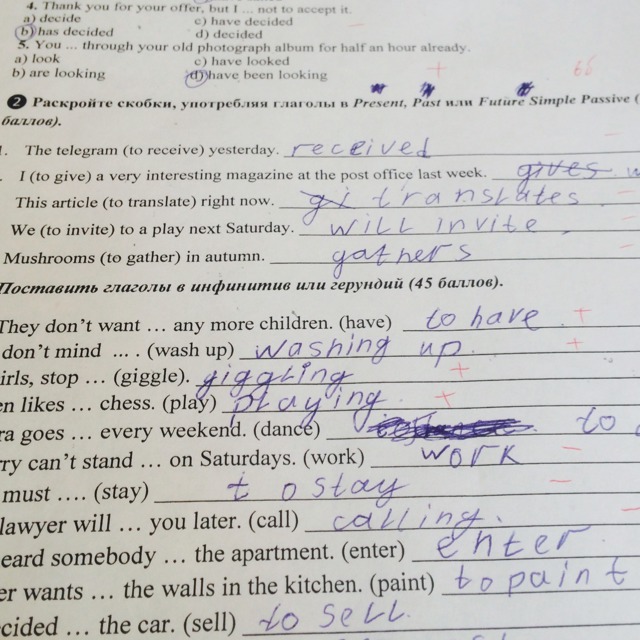 4. Thank you for your offer, but I ... not to accept it.
a) decide c) have decided
b) has decided d) decided
5. You ... through your old photograph album for half an hour already.
a) look c) have looked
b) are looking d) have been looking
+ 66
2 Раскройте скобки, употребляя глаголы в Present, Past или Future Simple Passive (
баллов).
1. The telegram (to receive) yesterday. received
. I (to give) a very interesting magazine at the post office last week. gives
This article (to translate) right now. translates
We (to invite) to a play next Saturday. will invite
Mushrooms (to gather) in autumn. gathers
Поставить глаголы в инфинитив или герундий (45 баллов).
They don't want ... any more children. (have) to have +
don't mind ... . (wash up) washing up +
irls, stop ... (giggle). giggling +
en likes ... chess. (play) playing +
ra goes ... every weekend. (dance) to
rry can't stand ... on Saturdays. (work) work –
must .... (stay) to stay –
lawyer will ... you later. (call) calling. –
eard somebody ... the apartment. (enter) enter
er wants ... the walls in the kitchen. (paint) to paint
cided ... the car. (sell) to sell.